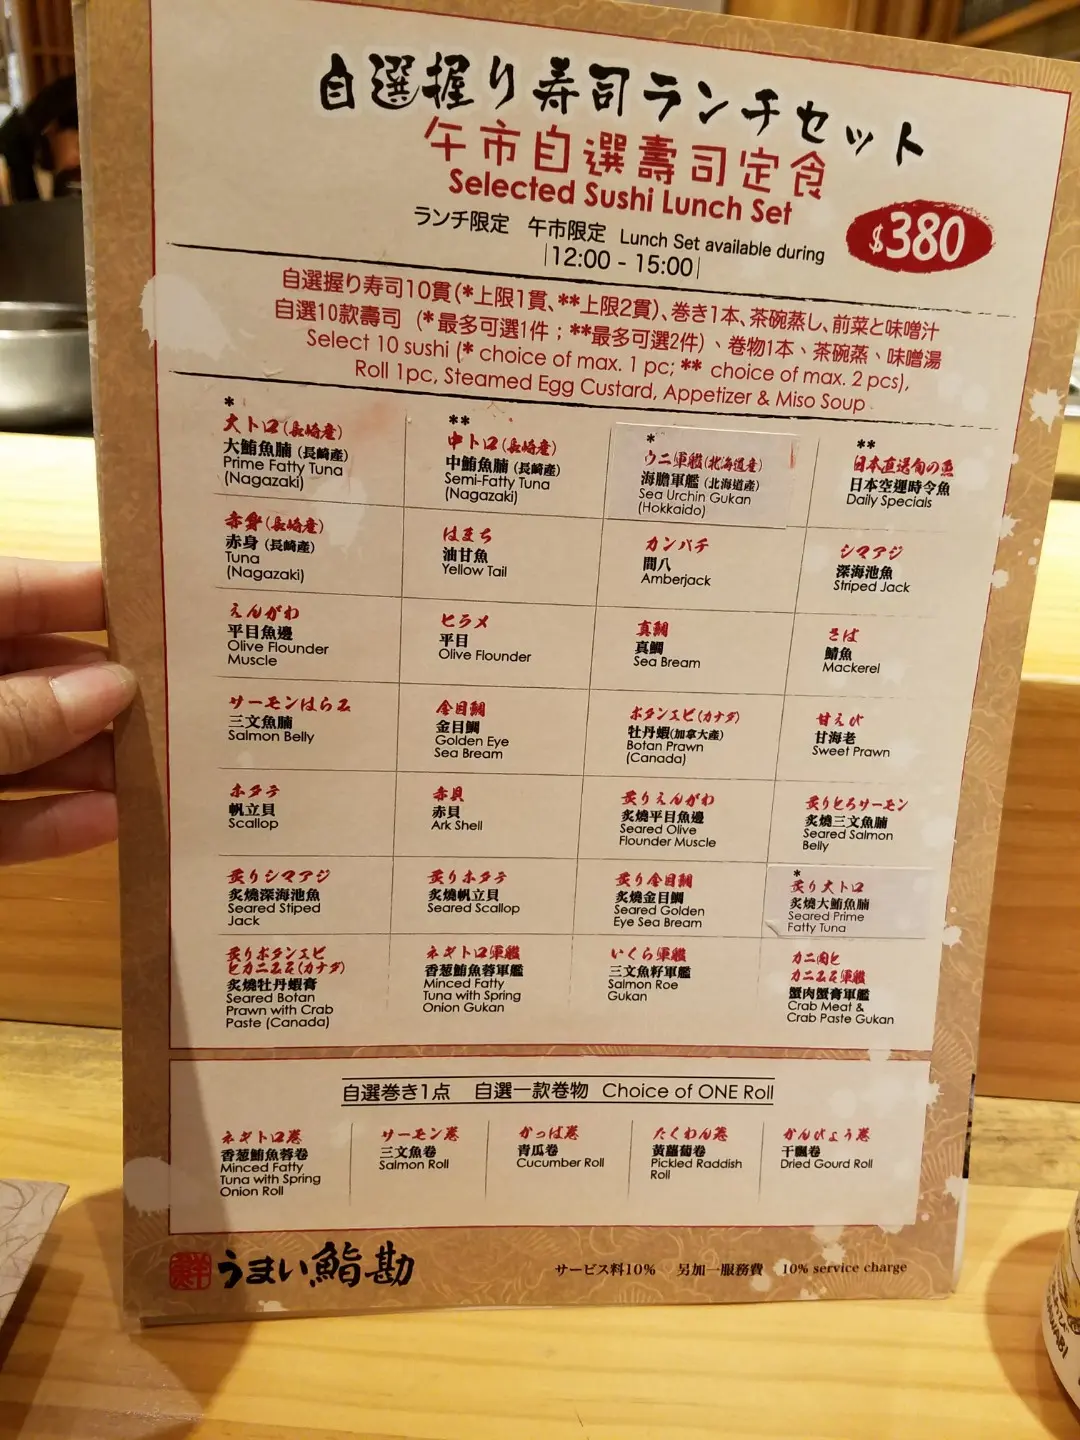 自選握り寿司ランチセット
午市自選壽司定食
Selected Sushi Lunch Set
$380
ランチ限定 午市限定 Lunch Set available during
12:00 - 15:00
自選握り寿司10貫(*上限1貫、**上限2貫)、巻き1本、茶碗蒸し、前菜と味噌汁
自選10款壽司 (*最多可選1件；**最多可選2件)、卷物1本、茶碗蒸、味噌湯
Select 10 sushi (* choice of max. 1 pc; ** choice of max. 2 pcs),
Roll 1pc, Steamed Egg Custard, Appetizer & Miso Soup
*
大トロ(長崎産)
大鮪魚腩 (長崎產)
Prime Fatty Tuna
(Nagazaki)
**
中トロ(長崎産)
中鮪魚腩 (長崎產)
Semi-Fatty Tuna
(Nagazaki)
*
ウニ軍艦(北海道産)
海膽軍艦 (北海道產)
Sea Urchin Gukan
(Hokkaido)
**
日本直送旬の魚
日本空運時令魚
Daily Specials
赤身(長崎産)
赤身 (長崎產)
Tuna
(Nagazaki)
はまち
油甘魚
Yellow Tail
カンパチ
間八
Amberjack
シマアジ
深海池魚
Striped Jack
えんがわ
平目魚邊
Olive Flounder
Muscle
ヒラメ
平目
Olive Flounder
真鯛
真鯛
Sea Bream
さば
鯖魚
Mackerel
サーモンはらみ
三文魚腩
Salmon Belly
金目鯛
金目鯛
Golden Eye
Sea Bream
ボタンエビ(カナダ)
牡丹蝦(加拿大產)
Botan Prawn
(Canada)
甘えび
甘海老
Sweet Prawn
ホタテ
帆立貝
Scallop
赤貝
赤貝
Ark Shell
炙りえんがわ
炙燒平目魚邊
Seared Olive
Flounder Muscle
炙りとろサーモン
炙燒三文魚腩
Seared Salmon
Belly
炙りシマアジ
炙燒深海池魚
Seared Stiped
Jack
炙りホタテ
炙燒帆立貝
Seared Scallop
炙り金目鯛
炙燒金目鯛
Seared Golden
Eye Sea Bream
*
炙り大トロ
炙燒大鮪魚腩
Seared Prime
Fatty Tuna
炙りボタンエビ
とカニみそ(カナダ)
炙燒牡丹蝦膏
Seared Botan
Prawn with Crab
Paste (Canada)
ネギトロ軍艦
香葱鮪魚蓉軍艦
Minced Fatty
Tuna with Spring
Onion Gukan
いくら軍艦
三文魚籽軍艦
Salmon Roe
Gukan
カニ肉と
カニみそ軍艦
蟹肉蟹膏軍艦
Crab Meat &
Crab Paste Gukan
自選巻き1点 自選一款卷物 Choice of ONE Roll
ネギトロ巻
香葱鮪魚蓉卷
Minced Fatty
Tuna with Spring
Onion Roll
サーモン巻
三文魚卷
Salmon Roll
かっぱ巻
青瓜卷
Cucumber Roll
たくわん巻
黃蘿蔔卷
Pickled Raddish
Roll
かんぴょう巻
干瓢卷
Dried Gourd Roll
うまい鮨勘
サービス料10% 另加一服務費 10% service charge